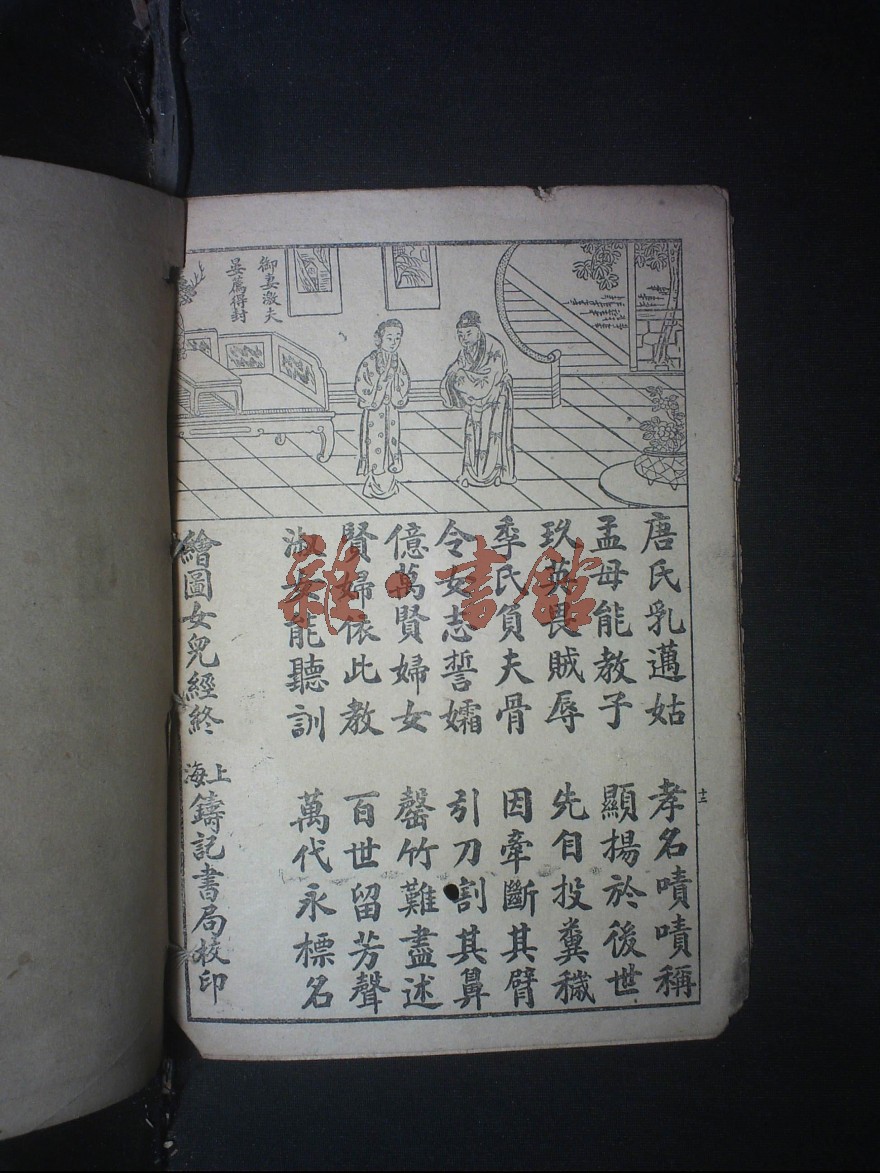 御妻激夫
晏薦得封
唐氏乳邁姑 孝名嘖嘖稱
孟母能教子 顯揚於後世
玖英畏賊辱 先自投糞穢
季氏負夫骨 因牽斷其臂
令女志誓孀 引刀割其鼻
億萬賢婦女 罄竹難盡述
賢婦依此教 百世留芳聲
淑女能聽訓 萬代永標名
繪圖女兒經終 上海鑄記書局校印
十二
雜·書館